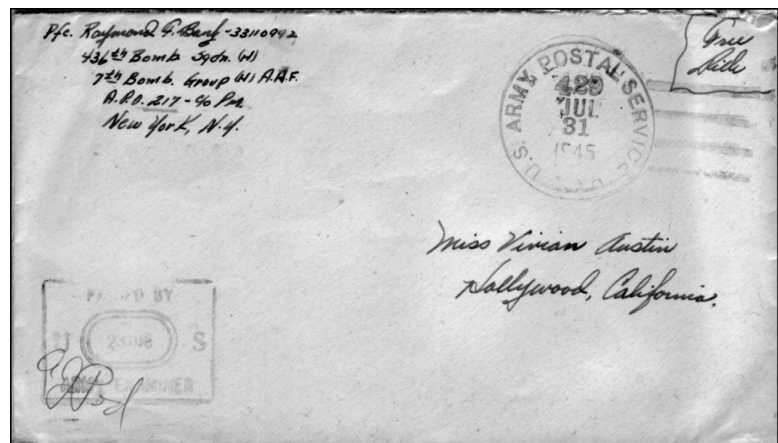 Pfc. Raymond F. Bank - 33110992
436th Bomb Sqdn. (H)
7th Bomb. Group (H) A.A.F.
A.P.O. 217 - c/o Pm.
New York, N.Y.
Free
U.S. ARMY POSTAL SERVICE
429
JUL
31
1945
Miss Vivian Austin
Hollywood, California.
PASSED BY
U S
ARMY EXAMINER